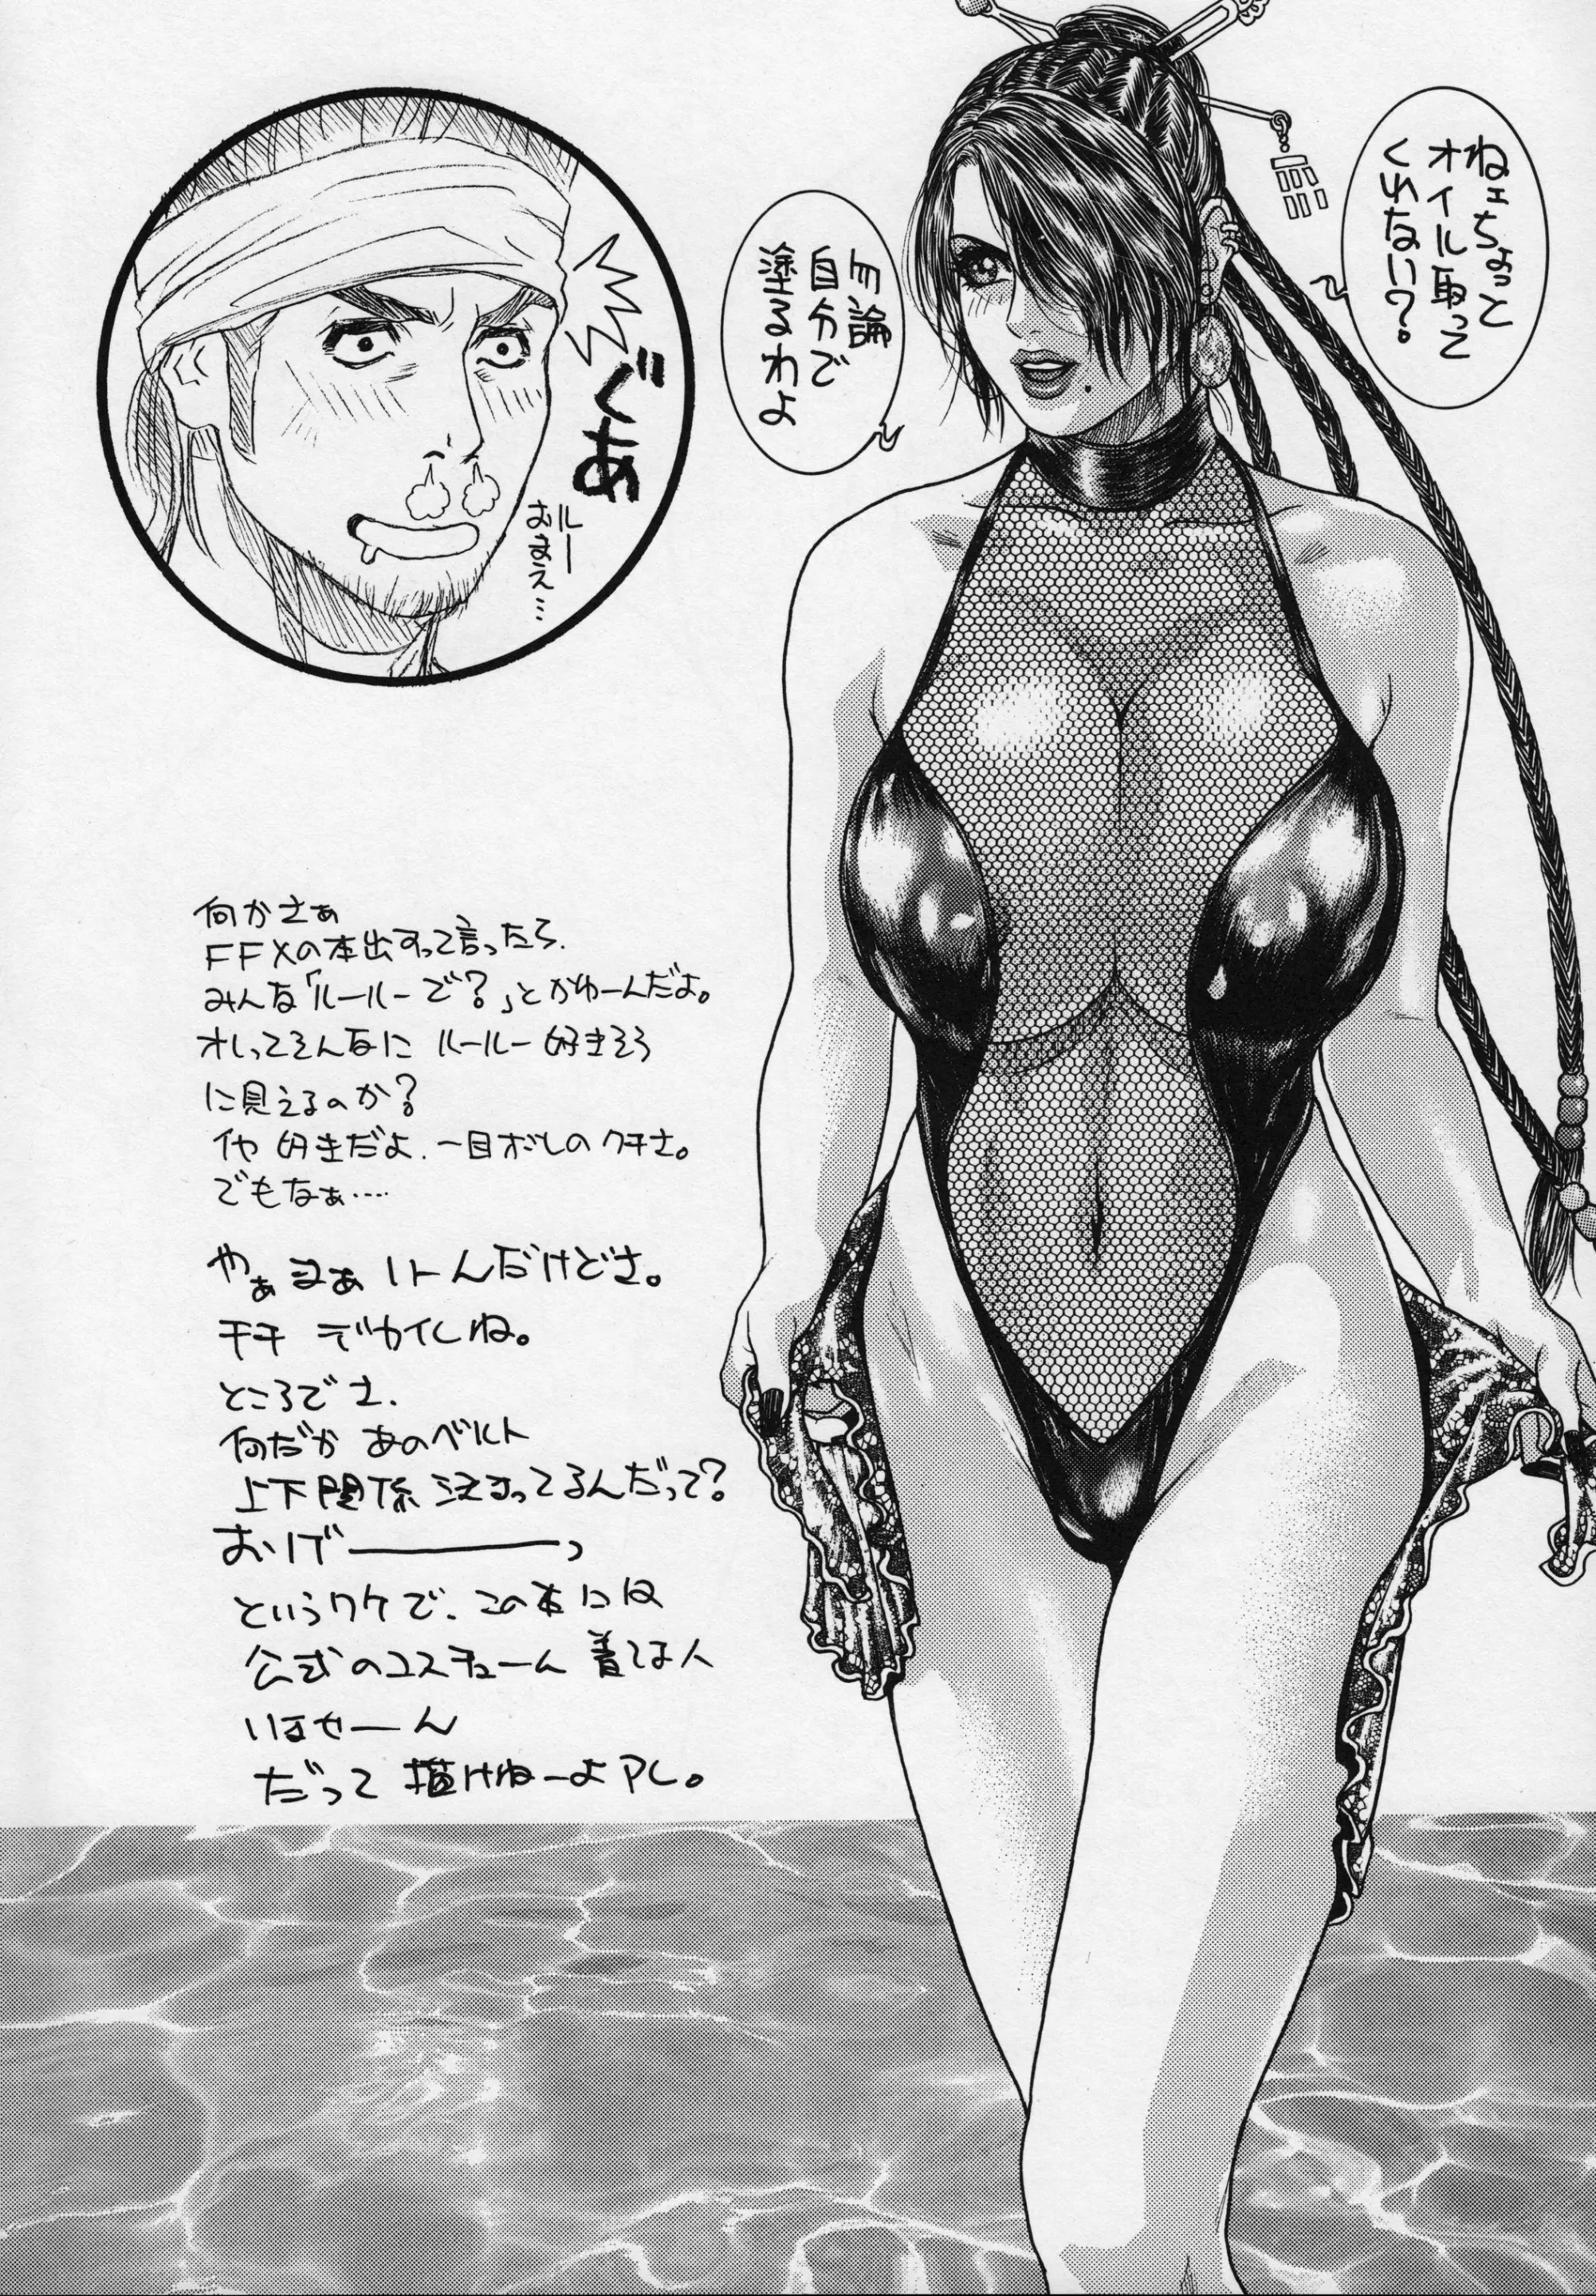 ねェちょっと
オイル取って
くれない?
勿論
自分で
塗るわよ
ぐあ
ルー
おまえ…
何かさぁ
FFXの本出すって言ったら、
みんな「ルールーで?」とかゆーんだよ。
オレってそんなに ルールー好きそう
に見えるのか?
イヤ 好きだよ、一目ボレのクチさ。
でもなぁ‥‥
やぁまぁ いーんだけどさ。
チチ デカイしね。
ところでさ、
何だか あのベルト
上下関係 決まってるんだって?
おりげ―――っ
というワケで、この本には
公式のコスチューム 着てる人
いませーん
だって 描けねーよアレ。